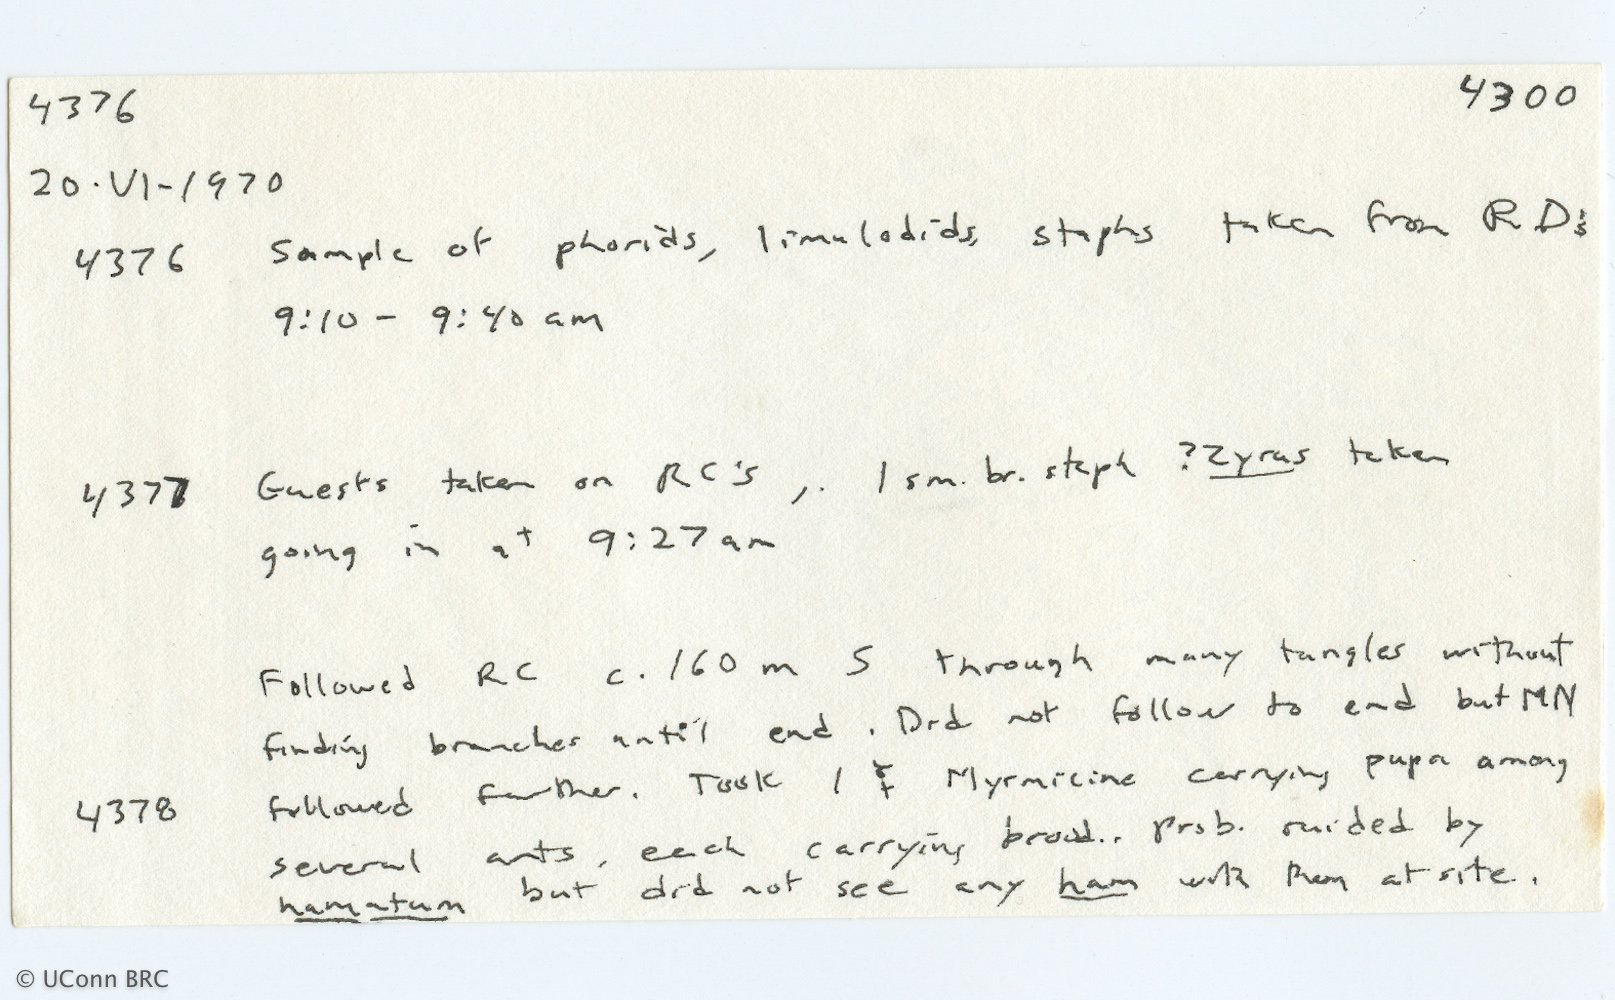 4376 4300
20·VI-1970
4376 Sample of phorids, limulodids, staphs taken from R.D.s
9:10 - 9:40 am
4377 Guests taken on RC's,. 1 sm. br. staph ?Zyras taken
going in at 9:27 am
Followed RC c. 160 m S through many tangles without
finding branches until end. Did not follow to end but MN
followed further. Took 1 ☿ Myrmicine carrying pupa among
4378 several ants, each carrying brood.. Prob. raided by
hamatum but did not see any ham with them at site.
© UConn BRC